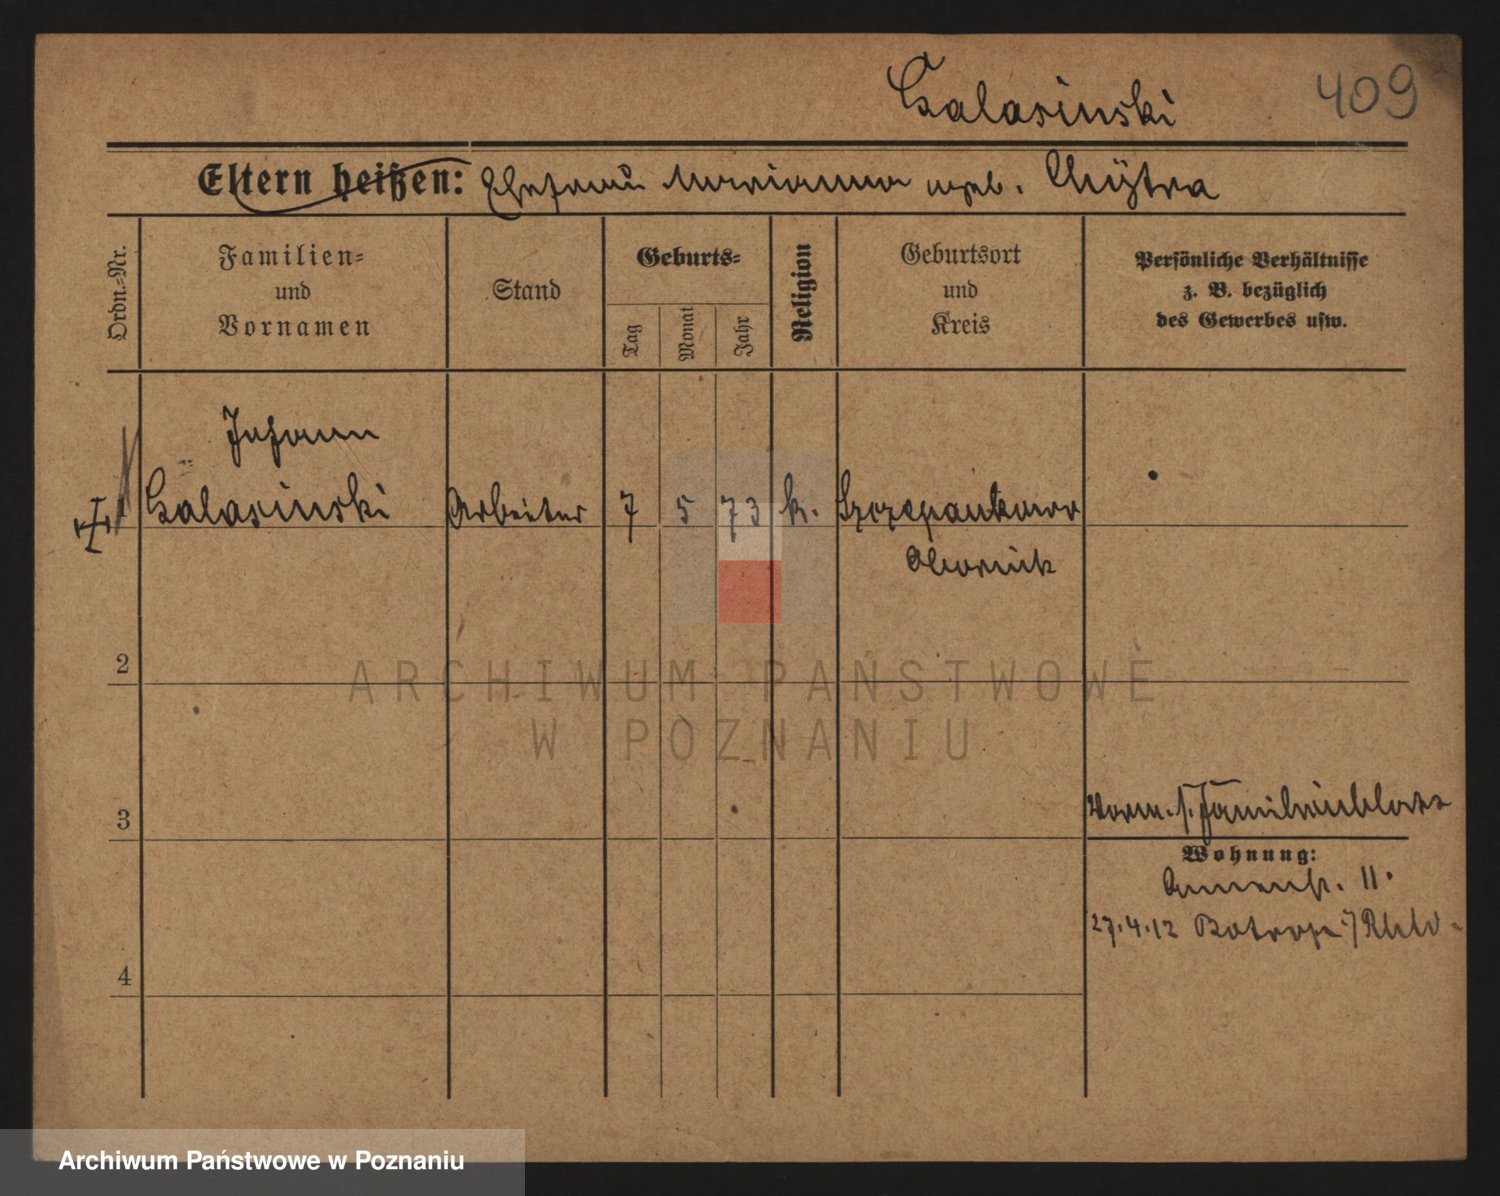 Galasinski 409
Eltern heißen: Ehefrau Marianna geb. Chÿtra
Ordn.-Nr.
Familien-
und
Vornamen
Stand
Geburts-
Tag
Monat
Jahr
Religion
Geburtsort
und
Kreis
Persönliche Verhältnisse
z. B. bezüglich
des Gewerbes usw.
Johann
Galasinski Arbeiter 7 5 73 k. Szczepankowo
Obornik
2
3
4
Vorm. s. Familienblatt
Wohnung:
Annenstr. 11.
27.4.12 Botrop
ARCHIWUM PAŃSTWOWE
W POZNANIU
Archiwum Państwowe w Poznaniu